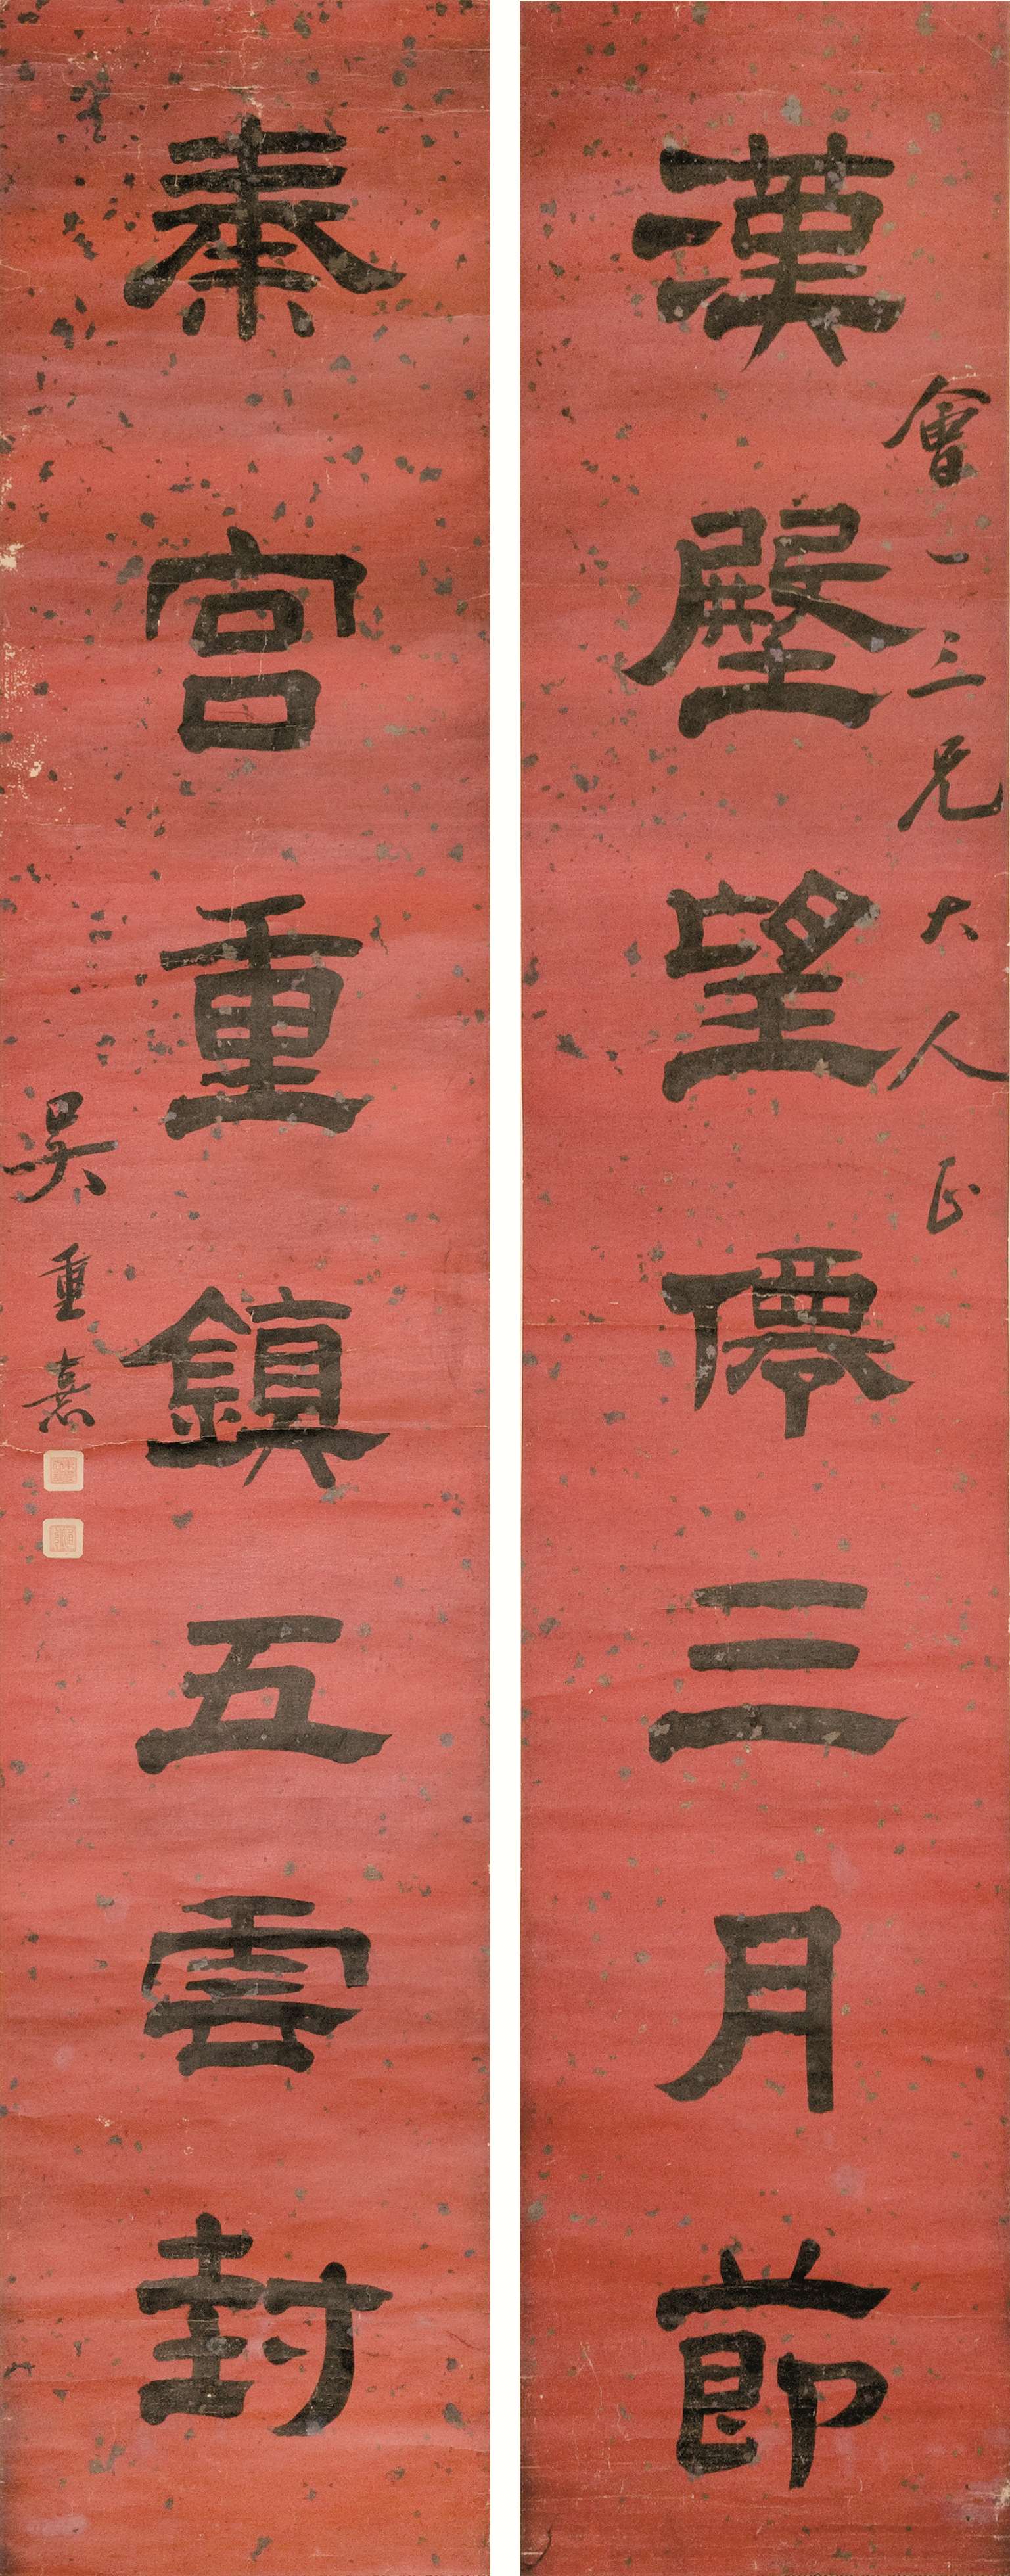 漢殿望僊三月節
會一三兄大人正
秦宮重鎮五雲封
吳重憙